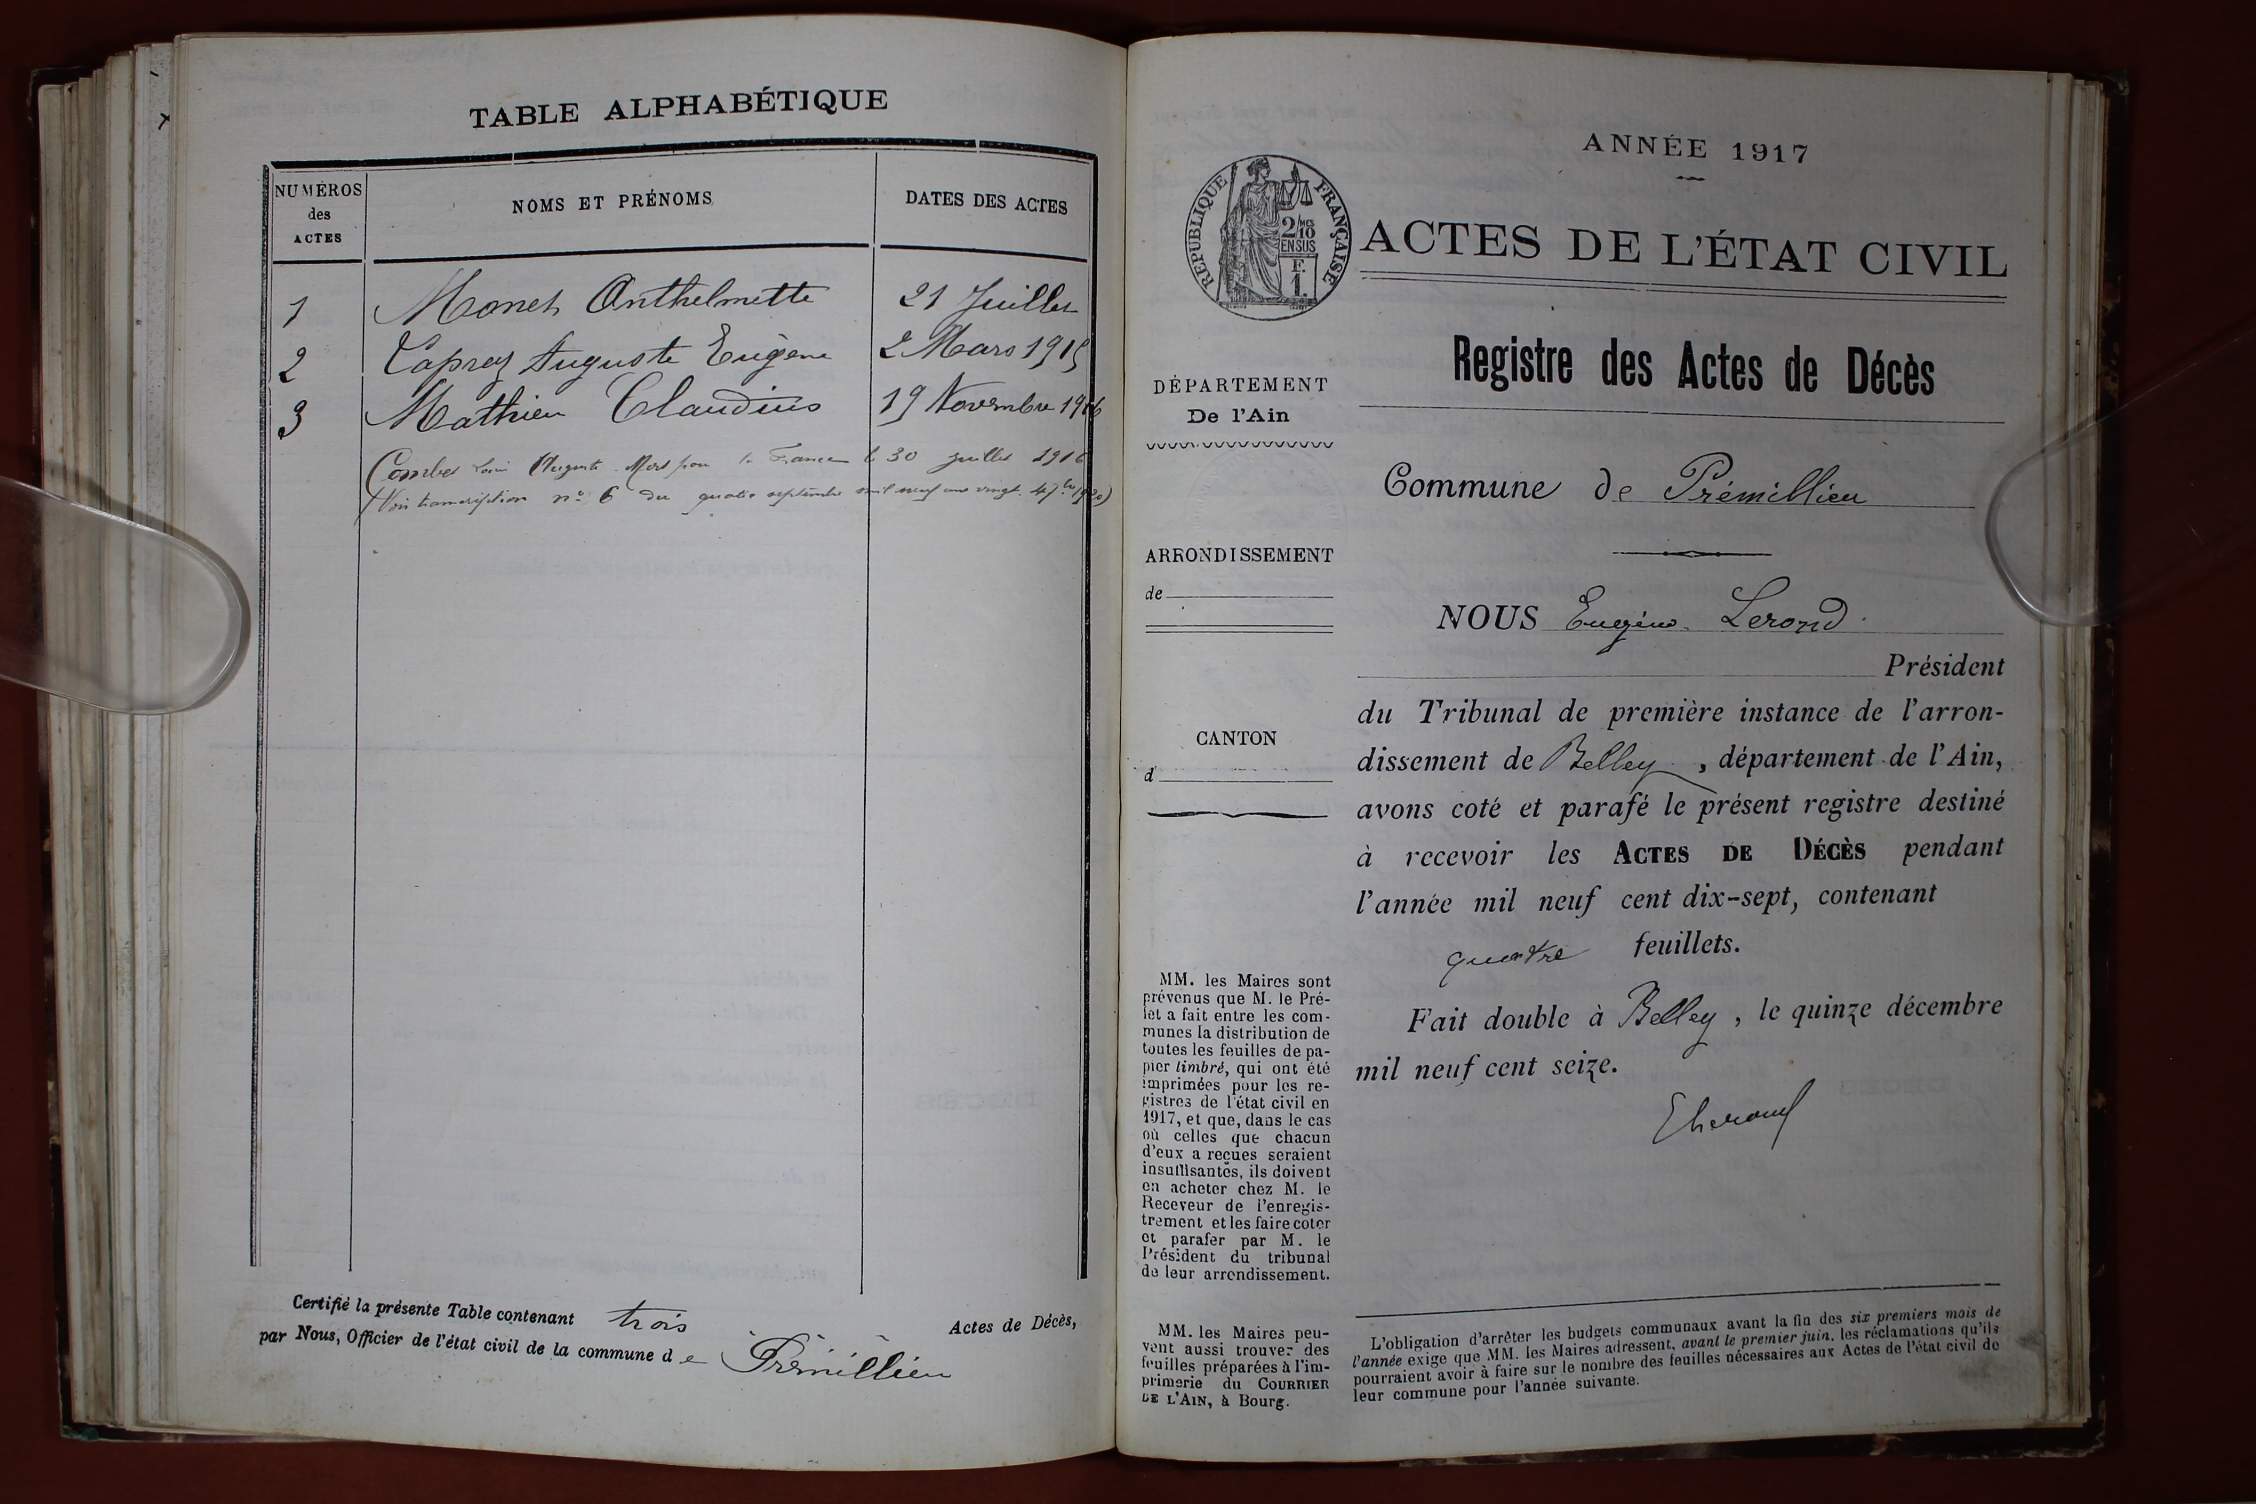 TABLE ALPHABÉTIQUE
NUMÉROS
des
ACTES
NOMS ET PRÉNOMS
DATES DES ACTES
1 Monet Anthelmette 21 Juillet
2 Capraz Auguste Eugène 2 Mars 1915
3 Mathieu Claudius 19 Novembre 1916
Combet Louis Auguste Mort pour la France le 30 juillet 1916
(Voir transcription n° 6 du quatre septembre mil neuf cent vingt
Certifié la présente Table contenant trois Actes de Décès,
par Nous, Officier de l'état civil de la commune de Prémillieu
ANNÉE 1917
RÉPUBLIQUE FRANÇAISE
2/10
EN SUS
F.
1.
ACTES DE L'ÉTAT CIVIL
Registre des Actes de Décès
DÉPARTEMENT
De l'Ain
Commune de Prémillieu
ARRONDISSEMENT
de
NOUS Eugène Lerond
Président
du Tribunal de première instance de l'arron-
dissement de Belley, département de l'Ain,
avons coté et parafé le présent registre destiné
à recevoir les ACTES DE DÉCÈS pendant
l'année mil neuf cent dix-sept, contenant
quatre feuillets.
Fait double à Belley, le quinze décembre
mil neuf cent seize.
ELerond
CANTON
d
MM. les Maires sont
prévenus que M. le Pré-
fet a fait entre les com-
munes la distribution de
toutes les feuilles de pa-
pier timbré, qui ont été
imprimées pour les re-
gistres de l'état civil en
1917, et que, dans le cas
où celles que chacun
d'eux a reçues seraient
insuffisantes, ils doivent
en acheter chez M. le
Receveur de l'enregis-
trement et les faire coter
et parafer par M. le
Président du tribunal
de leur arrondissement.
MM. les Maires peu-
vent aussi trouver des
feuilles préparées à l'im-
primerie du COURRIER
DE L'AIN, à Bourg.
L'obligation d'arrêter les budgets communaux avant la fin des six premiers mois de
l'année exige que MM. les Maires adressent, avant le premier juin, les réclamations qu'ils
pourraient avoir à faire sur le nombre des feuilles nécessaires aux Actes de l'état civil de
leur commune pour l'année suivante.